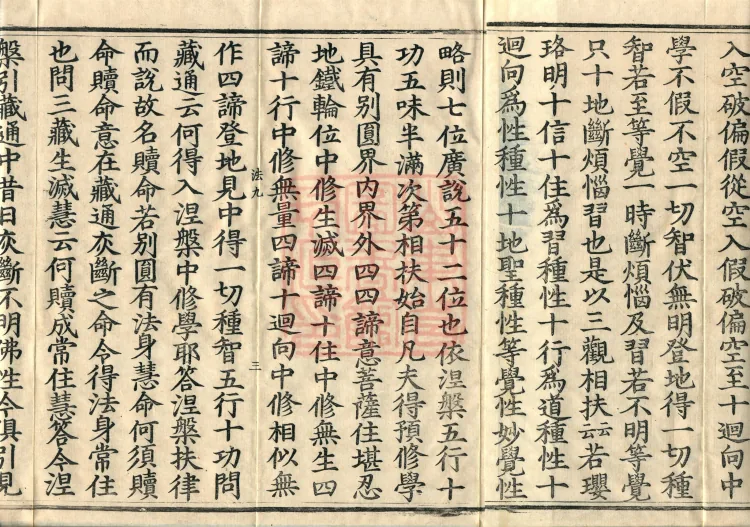 入空破偏假從空入假破偏空至十迴向中
學不假不空一切智伏無明登地得一切種
智若至等覺一時斷煩惱及習若不明等覺
只十地斷煩惱習也是以三觀相扶云云若瓔
珞明十信十住為習種性十行為道種性十
迴向為性種性十地聖種性等覺性妙覺性
略則七位廣說五十二位也依涅槃五行十
功五味半滿次第相扶始自凡夫得預修學
具有別圓界內界外四四諦意菩薩住堪忍
地鐵輪位中修生滅四諦十住中修無生四
諦十行中修無量四諦十迴向中修相似無
法九 三
作四諦登地見中得一切種智五行十功問
藏通云何得入涅槃中修學耶答涅槃扶律
而說故名贖命若別圓有法身慧命何須贖
命贖命意在藏通灰斷之命令得法身常住
也問三藏生滅慧云何贖成常住慧答今涅
槃引藏通中昔日灰斷不明佛性今俱引見